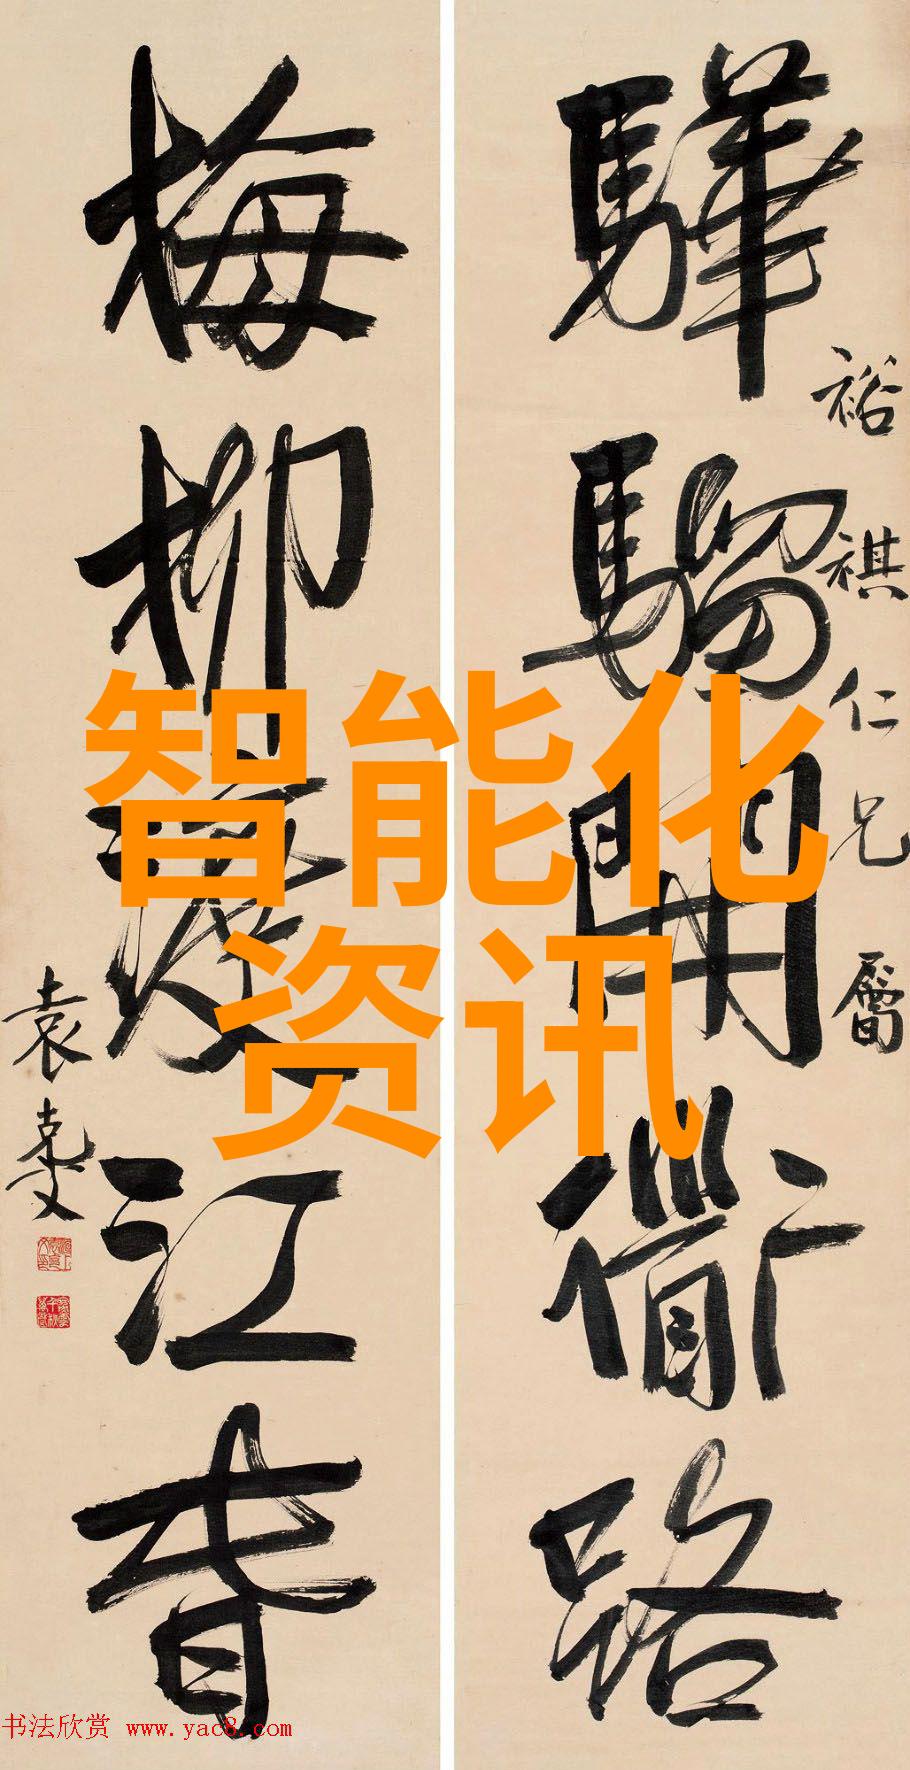 驊騮開衜路
裕祺仁兄屬
梅柳渡江春
袁克文
智能化
资讯
书法欣赏 www.yac8.com